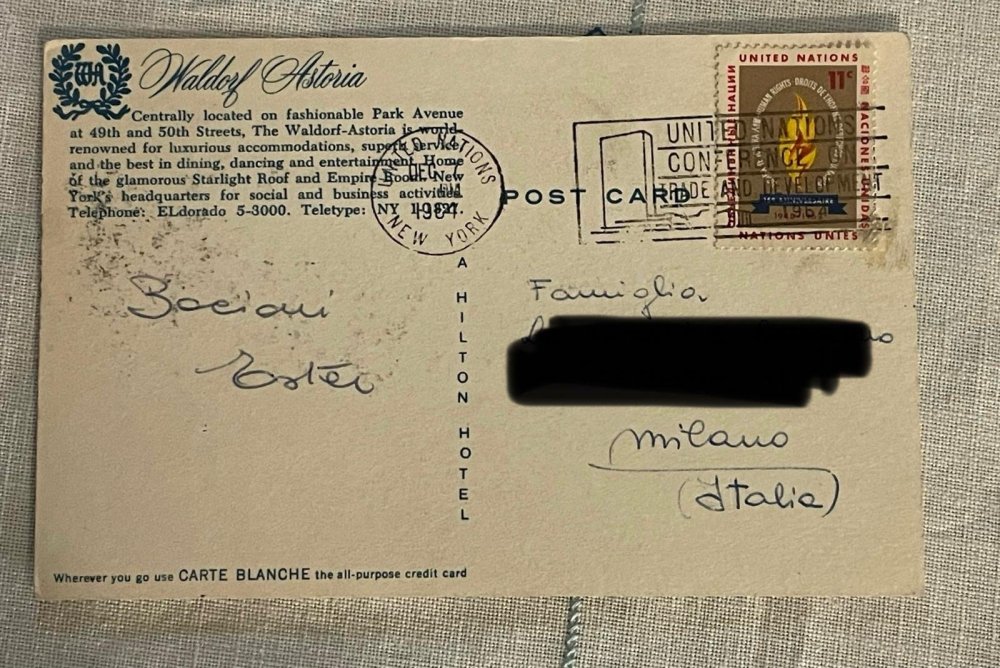 WA
Waldorf Astoria
Centrally located on fashionable Park Avenue
at 49th and 50th Streets, The Waldorf-Astoria is world-
renowned for luxurious accommodations, superb service
and the best in dining, dancing and entertainment. Home
of the glamorous Starlight Roof and Empire Room. New
York's headquarters for social and business activities.
Telephone: ELdorado 5-3000. Teletype: NY
UNITED NATIONS
DEC
NEW YORK
POST CARD
UNITED NATIONS
CONFERENCE ON
TRADE AND DEVELOPMENT
1964
UNITED NATIONS
11c
HUMAN RIGHTS · DROITS DE L'HOMME
NACIONES UNIDAS
NATIONS UNIES
A HILTON HOTEL
Bacioni
Ester
Famiglia
Milano
(Italia)
Wherever you go use CARTE BLANCHE the all-purpose credit card